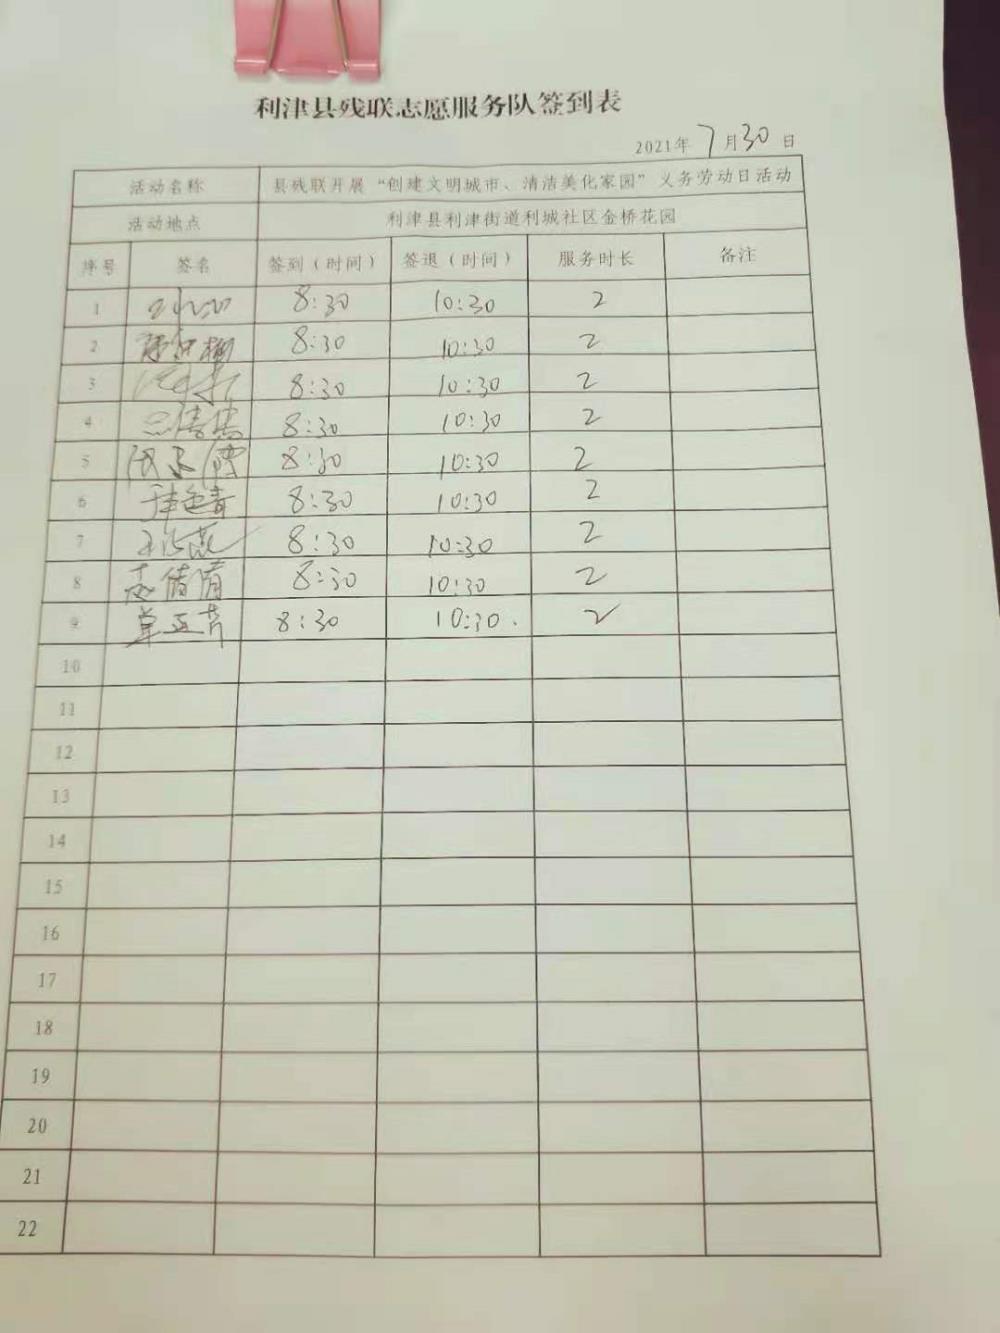 利津县残联志愿服务队签到表
2021年7月30日
活动名称 县残联开展“创建文明城市、清洁美化家园”义务劳动日活动
活动地点 利津县利津街道利城社区金桥花园
序号 签名 签到（时间） 签退（时间） 服务时长 备注
1 8:30 10:30 2
2 8:30 10:30 2
3 8:30 10:30 2
4 8:30 10:30 2
5 8:30 10:30 2
6 8:30 10:30 2
7 8:30 10:30 2
8 8:30 10:30 2
9 8:30 10:30 2
10
11
12
13
14
15
16
17
18
19
20
21
22